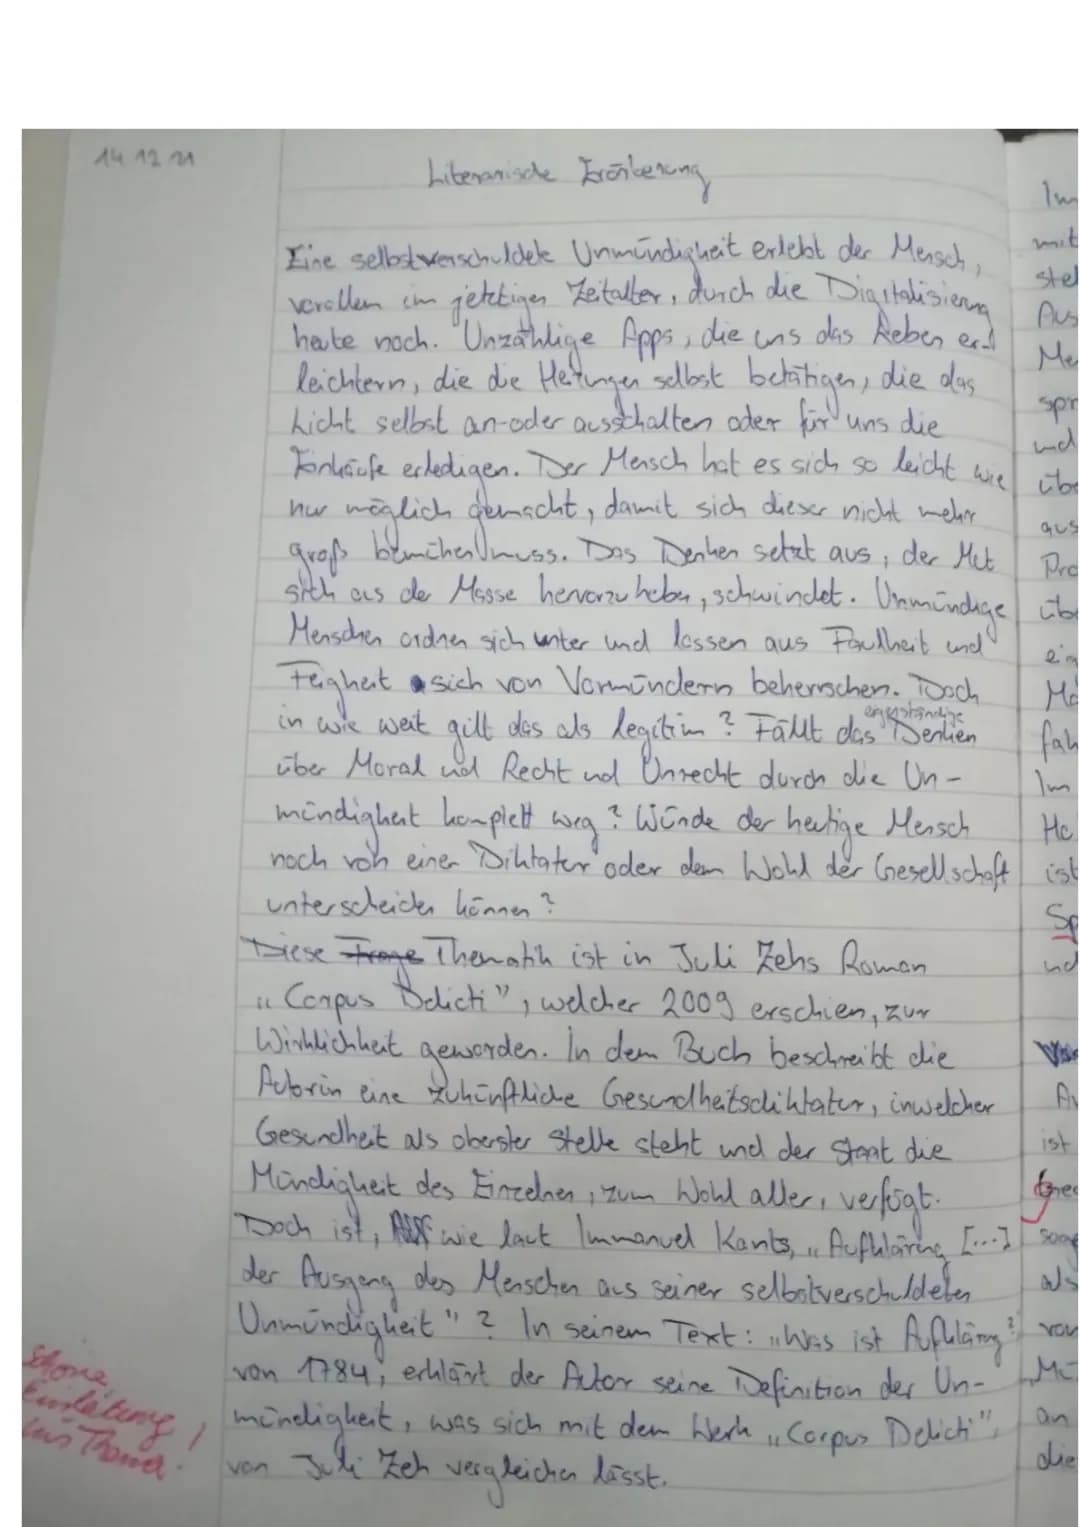 14.12.21
Literarische Erörterung
Eine selbstverschuldete Unmündigkeit erlebt der Mensch,
vorallem im jetztigen Zeitalter, durch die Digitalisierung
heute noch. Unzählige Apps, die uns das Leben er-
leichtern, die die Heizungen selbst betätigen, die das
Licht selbst an-oder ausschalten oder für uns die
Einkäufe erledigen. Der Mensch hat es sich so leicht wie
nur möglich gemacht, damit sich dieser nicht mehr
groß bemühen muss. Das Denken setzt aus, der Mut
sich aus der Masse hervorzuheben, schwindet. Unmündige
Menschen ordnen sich unter und lassen aus Faulheit und
Feigheit sich von Vormündern beherrschen. Doch
in wie weit gilt das als legitim? Fällt das eigenständige Denken
über Moral und Recht und Unrecht durch die Un-
mündigkeit komplett weg? Würde der heutige Mensch
noch von einer Diktatur oder dem Wohl der Gesellschaft
unterscheiden können?
Diese Frage Thematik ist in Juli Zehs Roman
„Corpus Delicti", welcher 2009 erschien, zur
Wirklichkeit geworden. In dem Buch beschreibt die
Autorin eine zukünftliche Gesundheitsdiktatur, inwelcher
Gesundheit als oberster Stelle steht und der Staat die
Mündigkeit des Einzelnen, zum Wohl aller, verfügt.
Doch ist, wie laut Immanuel Kants, „Aufklärung [...]
der Ausgang des Menschen aus seiner selbstverschuldeten
Unmündigkeit"? In seinem Text: „Was ist Aufklärung?
von 1784, erklärt der Autor seine Definition der Un-
mündigkeit, was sich mit dem Werk „Corpus Delicti",
von Juli Zeh vergleichen lässt.
Schöne
Einleitung
ins Thema!
mit
ist
ist
als
an
die